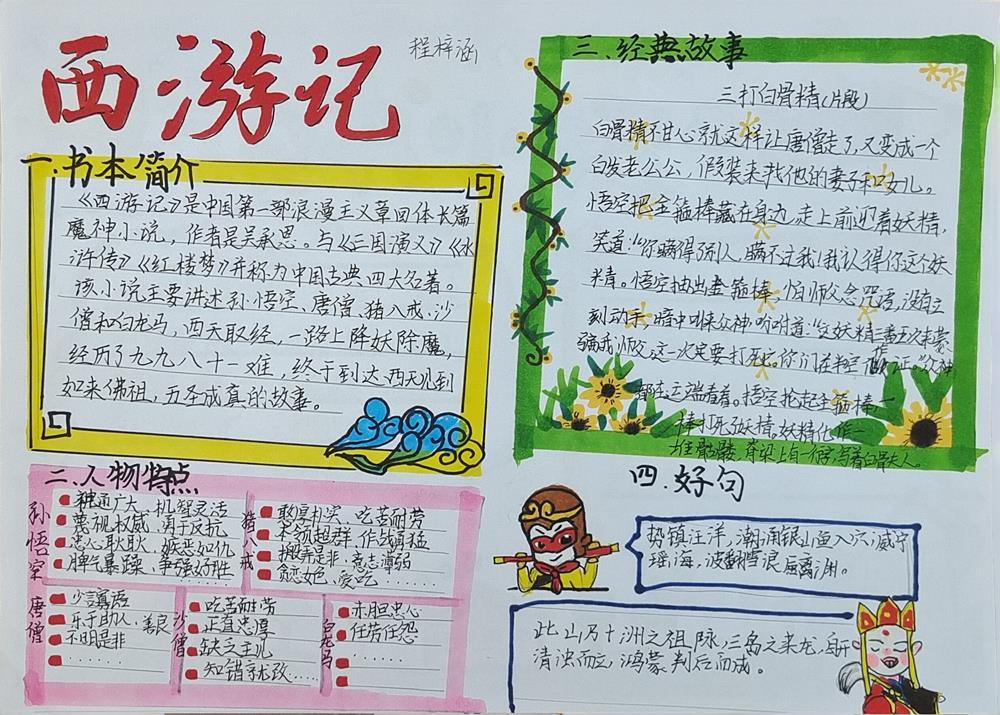 西游记
程梓涵
一.书本简介
《西游记》是中国第一部浪漫主义章回体长篇
魔神小说，作者是吴承恩。与《三国演义》《水
浒传》《红楼梦》并称为中国古典四大名著。
该小说主要讲述孙悟空、唐僧、猪八戒、沙
僧和白龙马，西天取经，一路上降妖除魔，
经历了九九八十一难，终于到达西天见到
如来佛祖，五圣成真的故事。
二.人物特点
孙悟空
神通广大 机智灵活
蔑视权威 勇于反抗
忠心耿耿 嫉恶如仇
脾气暴躁 争强好胜
猪八戒
憨厚朴实、吃苦耐劳
本领超群、作战勇猛
搬弄是非、意志薄弱
贪恋女色、爱吃……
唐僧
少言寡语
乐于助人、善良
不明是非
……
沙僧
吃苦耐劳
正直忠厚
缺乏主见
知错就改……
白龙马
赤胆忠心
任劳任怨
……
三.经典故事
三打白骨精(片段)
白骨精不甘心就这样让唐僧走了，又变成一个
白发老公公，假装来找他的妻子和女儿。
悟空把金箍棒藏在身边，走上前迎着妖精，
笑道："你瞒得了别人，瞒不过我！我认得你这个妖
精。悟空抽出金箍棒，怕师父念咒语，没有立
刻动手，暗中叫来众神，吩咐道："这妖精三番两次来蒙
骗我师父，这一次定要打死它。你们在半空作证。"众神
都在云端看着。悟空抡起金箍棒，一
棒打死妖精。妖精化作一
堆骷髅，脊梁上有一行字，写着白骨夫人。
四.好句
势镇汪洋，潮涌银山鱼入穴；威宁
瑶海，波翻雪浪蜃离渊。
此山乃十洲之祖脉，三岛之来龙，自开
清浊而立，鸿蒙判后而成。